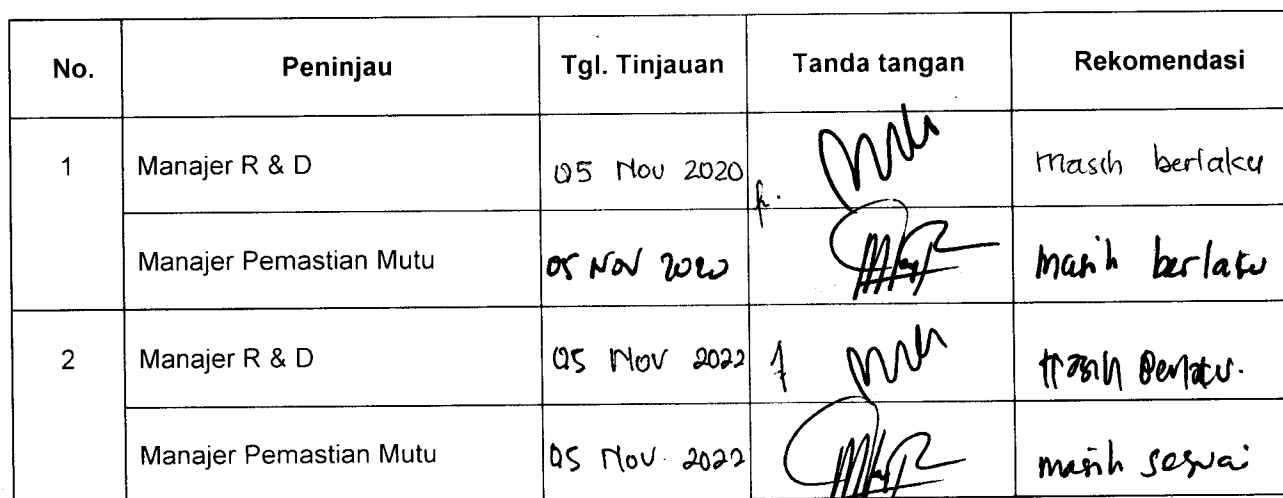 No. Peninjau Tgl. Tinjauan Tanda tangan Rekomendasi
1 Manajer R & D 05 Nov 2020 masih berlaku
Manajer Pemastian Mutu 05 Nov 2020 masih berlaku
2 Manajer R & D 05 Nov 2022 Masih Berlaku.
Manajer Pemastian Mutu 05 Nov. 2022 masih sesuai